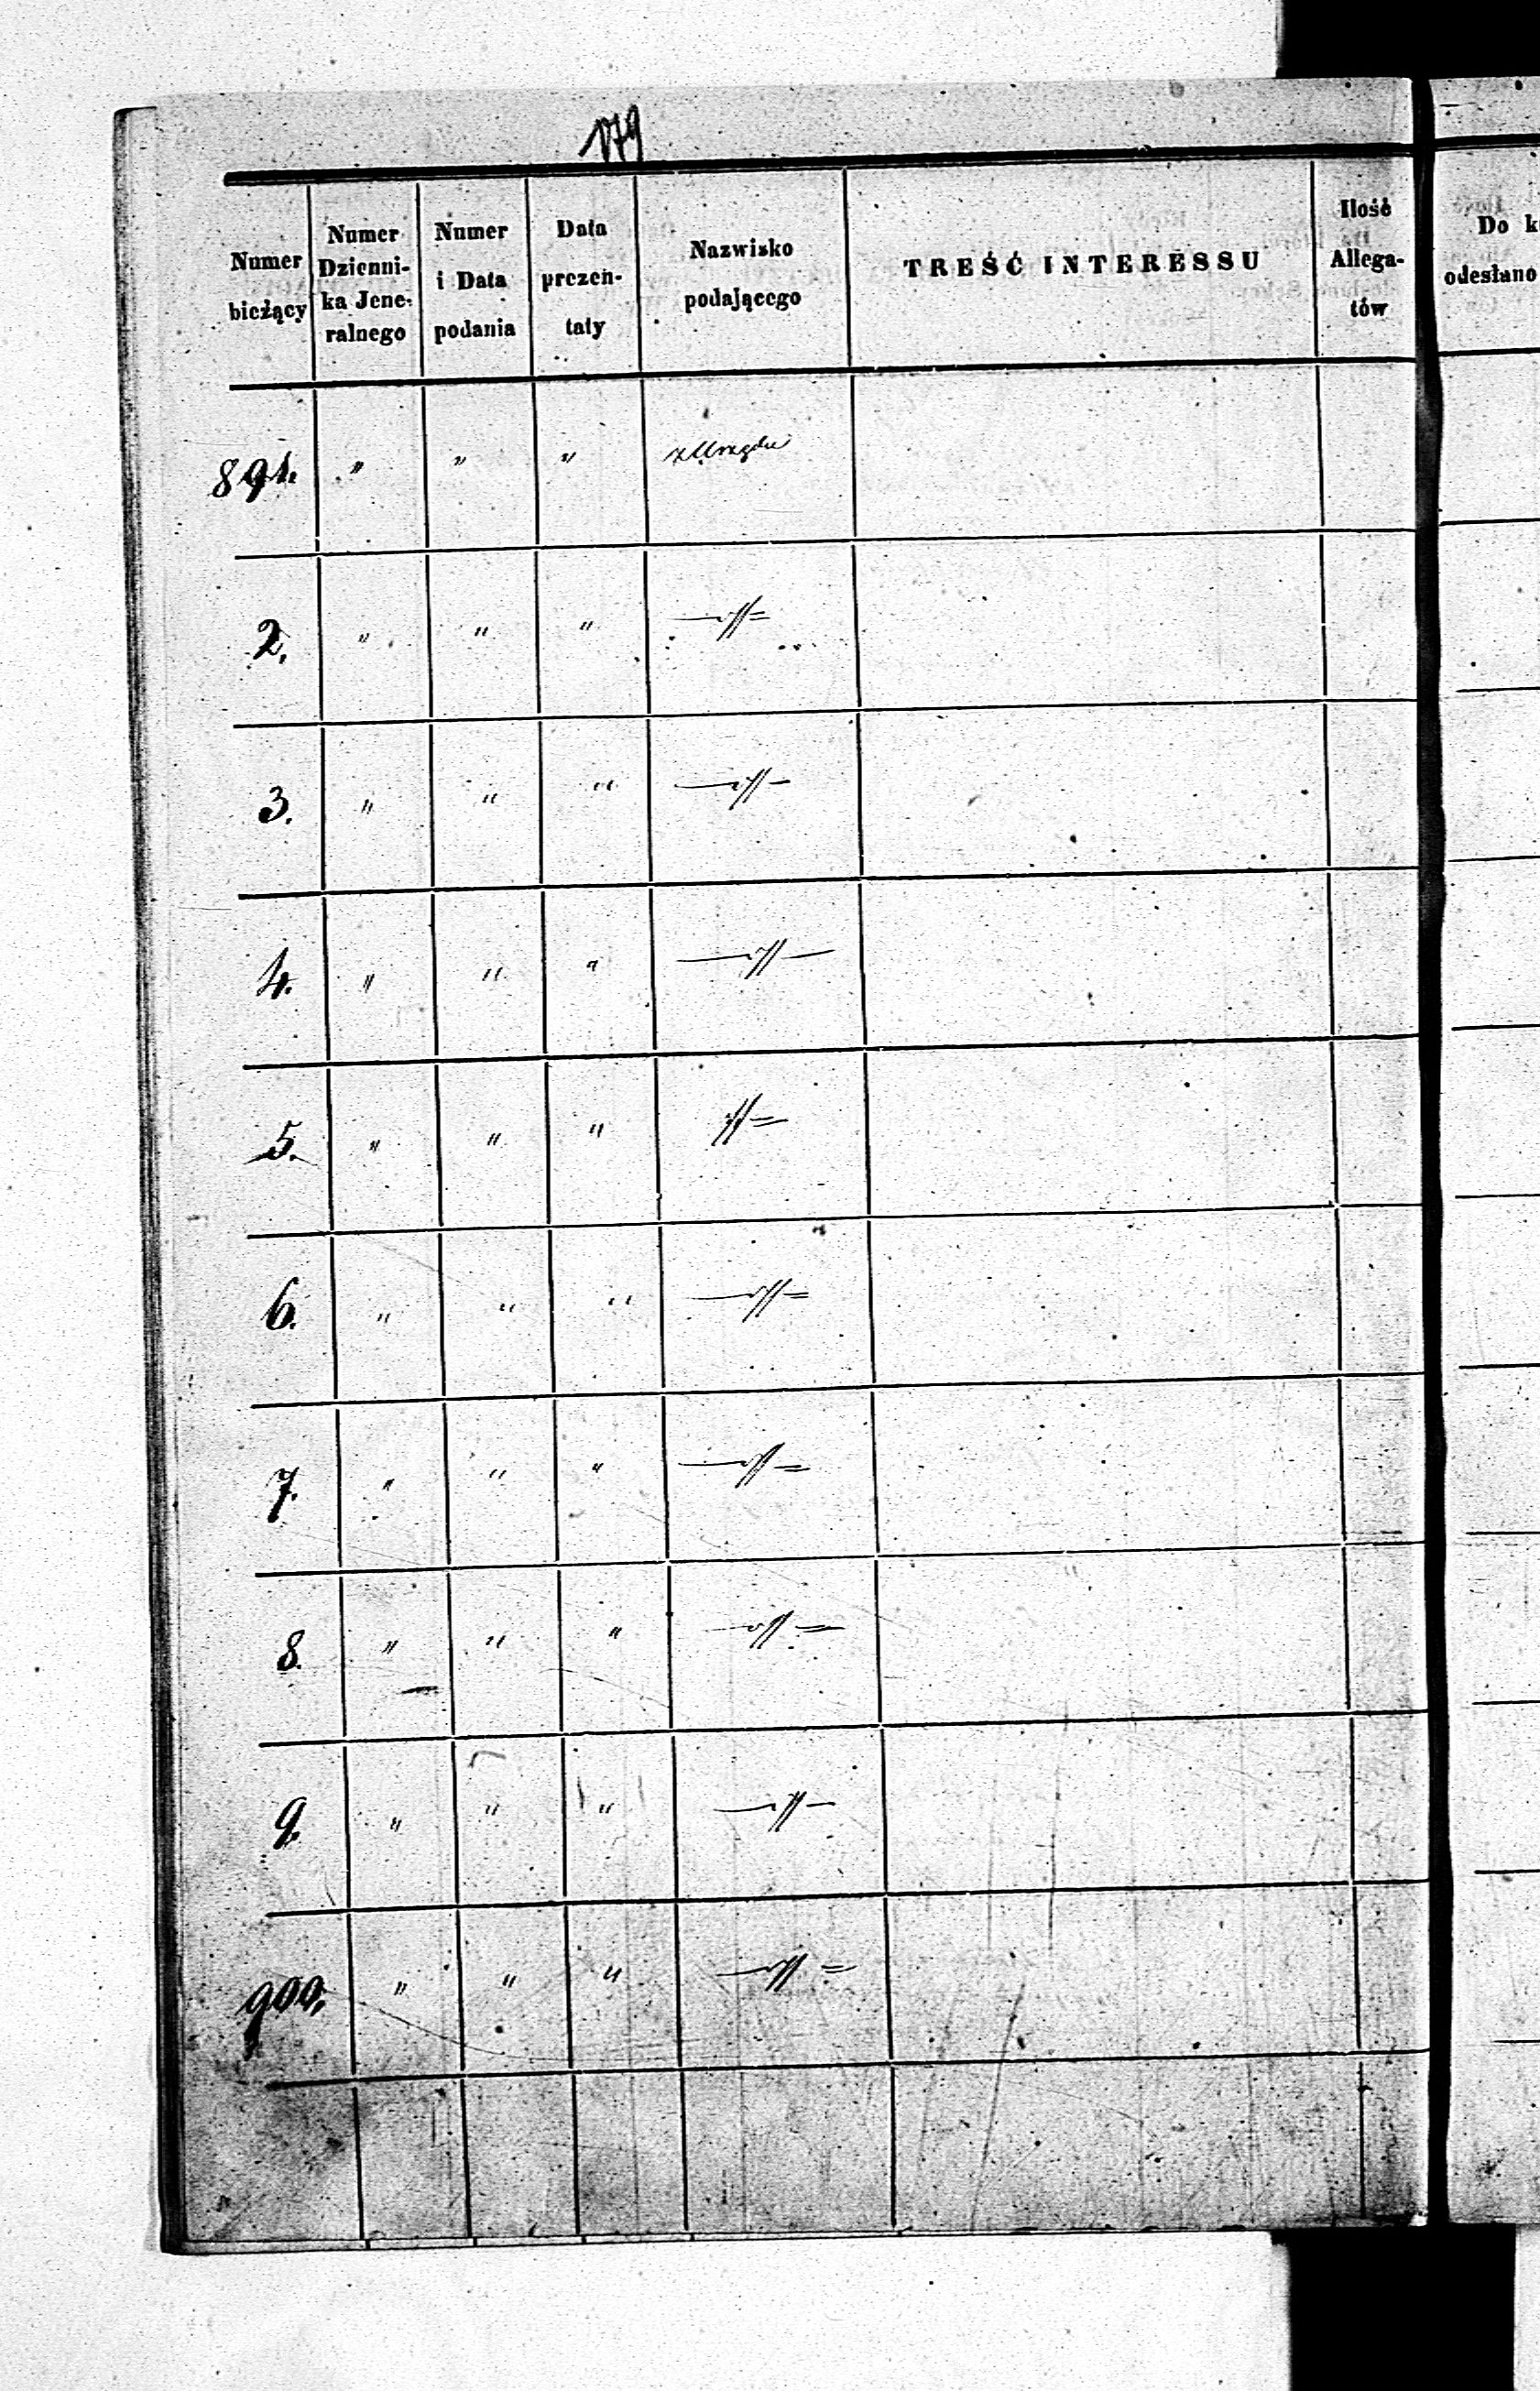 179
Numer bieżący | Numer Dzienni-ka Jene-ralnego | Numer i Data podania | Data prezen-taty | Nazwisko podającego | TREŚĆ INTERESSU | Ilość Allega-tów | Do k
odesłano
891. | " | " | " | z Urzędu
2. | " | " | " | —〃=
3. | " | " | " | —〃—
4. | " | " | " | —〃—
5. | " | " | " | 〃=
6. | " | " | " | —〃=
7. | " | " | " | —〃=
8. | " | " | " | —〃=
9. | " | " | " | —〃—
900. | " | " | " | —〃=